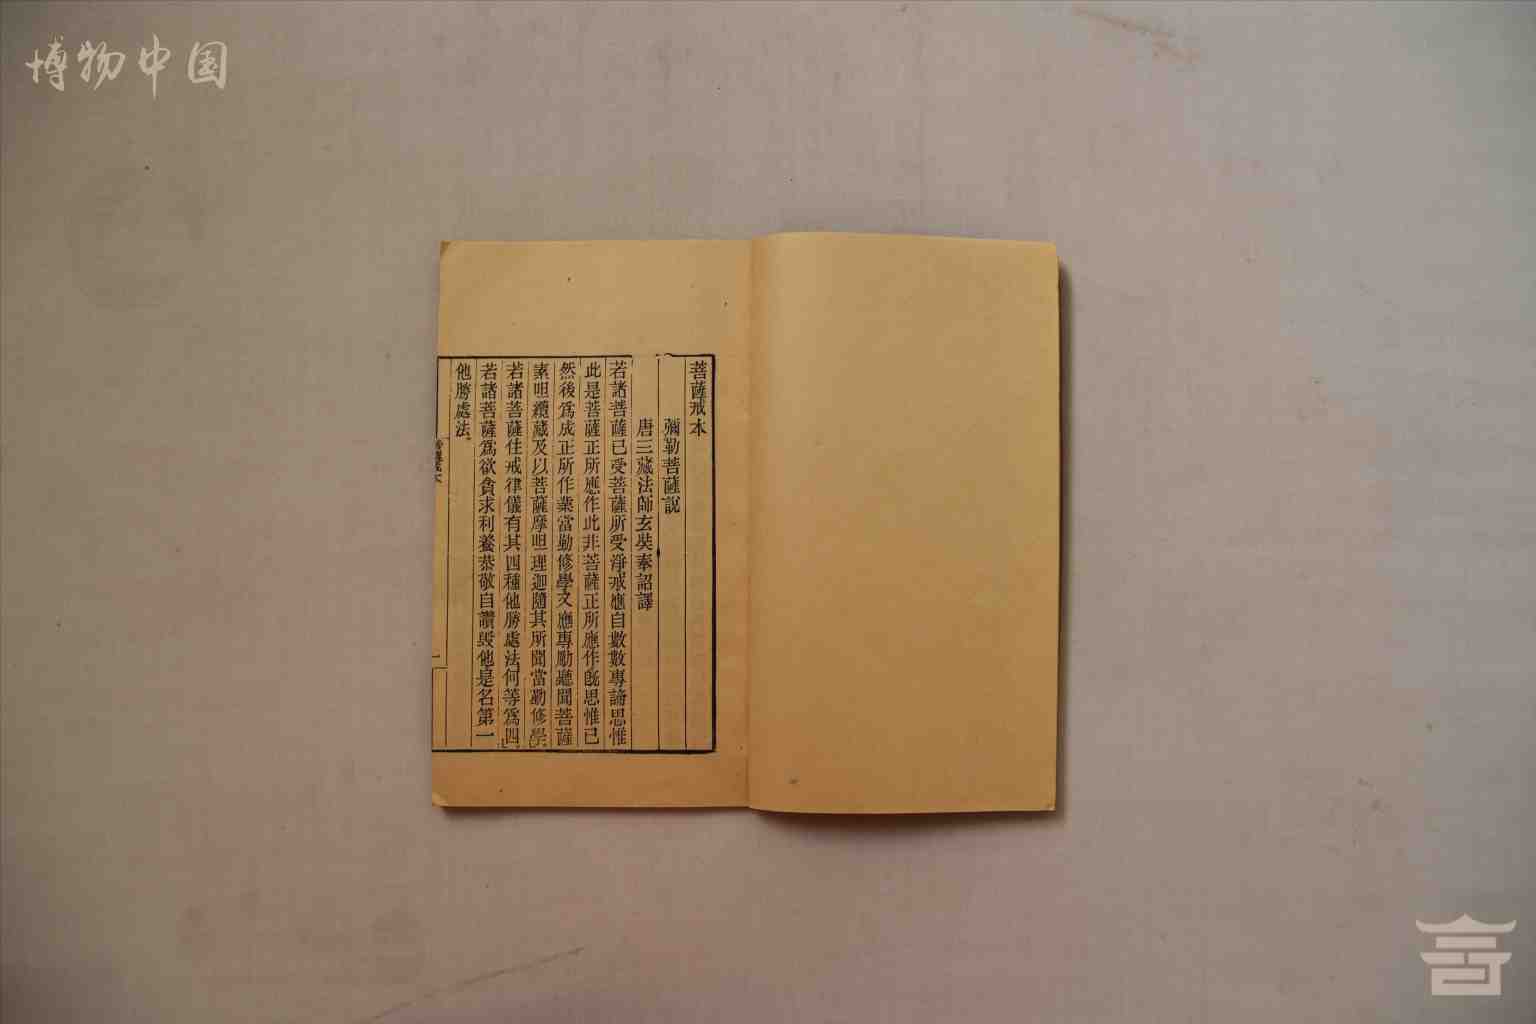 博物中国
菩薩戒本
彌勒菩薩說
唐三藏法師玄奘奉詔譯
若諸菩薩已受菩薩所受淨戒應自數數專諦思惟
此是菩薩正所應作此非菩薩正所應作旣思惟已
然後爲成正所作業當勤修學又應專勵聽聞菩薩
素呾纜藏及以菩薩摩呾理迦隨其所聞當勤修學
若諸菩薩住戒律儀有其四種他勝處法何等爲四
若諸菩薩爲欲貪求利養恭敬自讚毀他是名第一
他勝處法
菩薩戒本
一